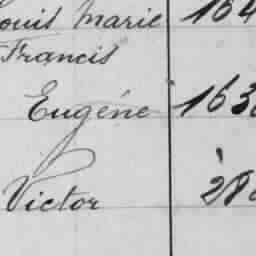 Louis Marie 164
Francis
Eugène 163
Victor 28